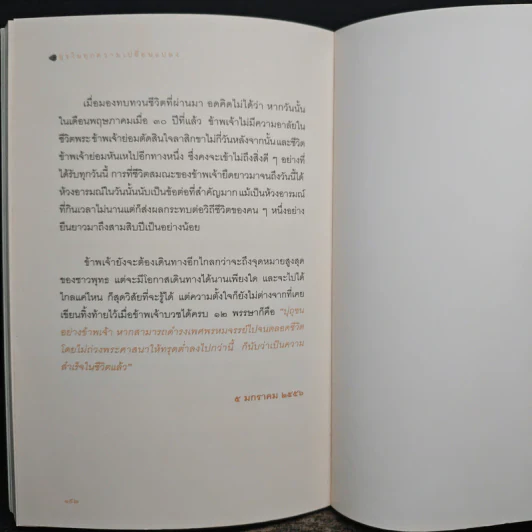 สุขในทุกความเปลี่ยนแปลง
เมื่อมองทบทวนชีวิตที่ผ่านมา อดคิดไม่ได้ว่า หากวันนั้น
ในเดือนพฤษภาคมเมื่อ ๓๐ ปีที่แล้ว ข้าพเจ้าไม่มีความอาลัยใน
ชีวิตพระ ข้าพเจ้าย่อมตัดสินใจลาสิกขาไม่กี่วันหลังจากนั้น และชีวิต
ข้าพเจ้าย่อมหันเหไปอีกทางหนึ่ง ซึ่งคงจะเข้าไม่ถึงสิ่งดี ๆ อย่างที่
ได้รับทุกวันนี้ การที่ชีวิตสมณะของข้าพเจ้ายืดยาวมาจนถึงวันนี้ได้
ห้วงอารมณ์ในวันนั้นนับเป็นข้อต่อที่สำคัญมาก แม้เป็นห้วงอารมณ์
ที่กินเวลาไม่นานแต่ก็ส่งผลกระทบต่อวิถีชีวิตของคน ๆ หนึ่งอย่าง
ยืนยาวมาถึงสามสิบปีเป็นอย่างน้อย
ข้าพเจ้ายังจะต้องเดินทางอีกไกลกว่าจะถึงจุดหมายสูงสุด
ของชาวพุทธ แต่จะมีโอกาสเดินทางได้นานเพียงใด และจะไปได้
ไกลแค่ไหน ก็สุดวิสัยที่จะรู้ได้ แต่ความตั้งใจก็ยังไม่ต่างจากที่เคย
เขียนทิ้งท้ายไว้เมื่อข้าพเจ้าบวชได้ครบ ๑๒ พรรษาก็คือ "ปุถุชน
อย่างข้าพเจ้า หากสามารถดำรงเพศพรหมจรรย์ไปจนตลอดชีวิต
โดยไม่ถ่วงพระศาสนาให้ทรุดต่ำลงไปกว่านี้ ก็นับว่าเป็นความ
สำเร็จในชีวิตแล้ว"
๕ มกราคม ๒๕๕๖